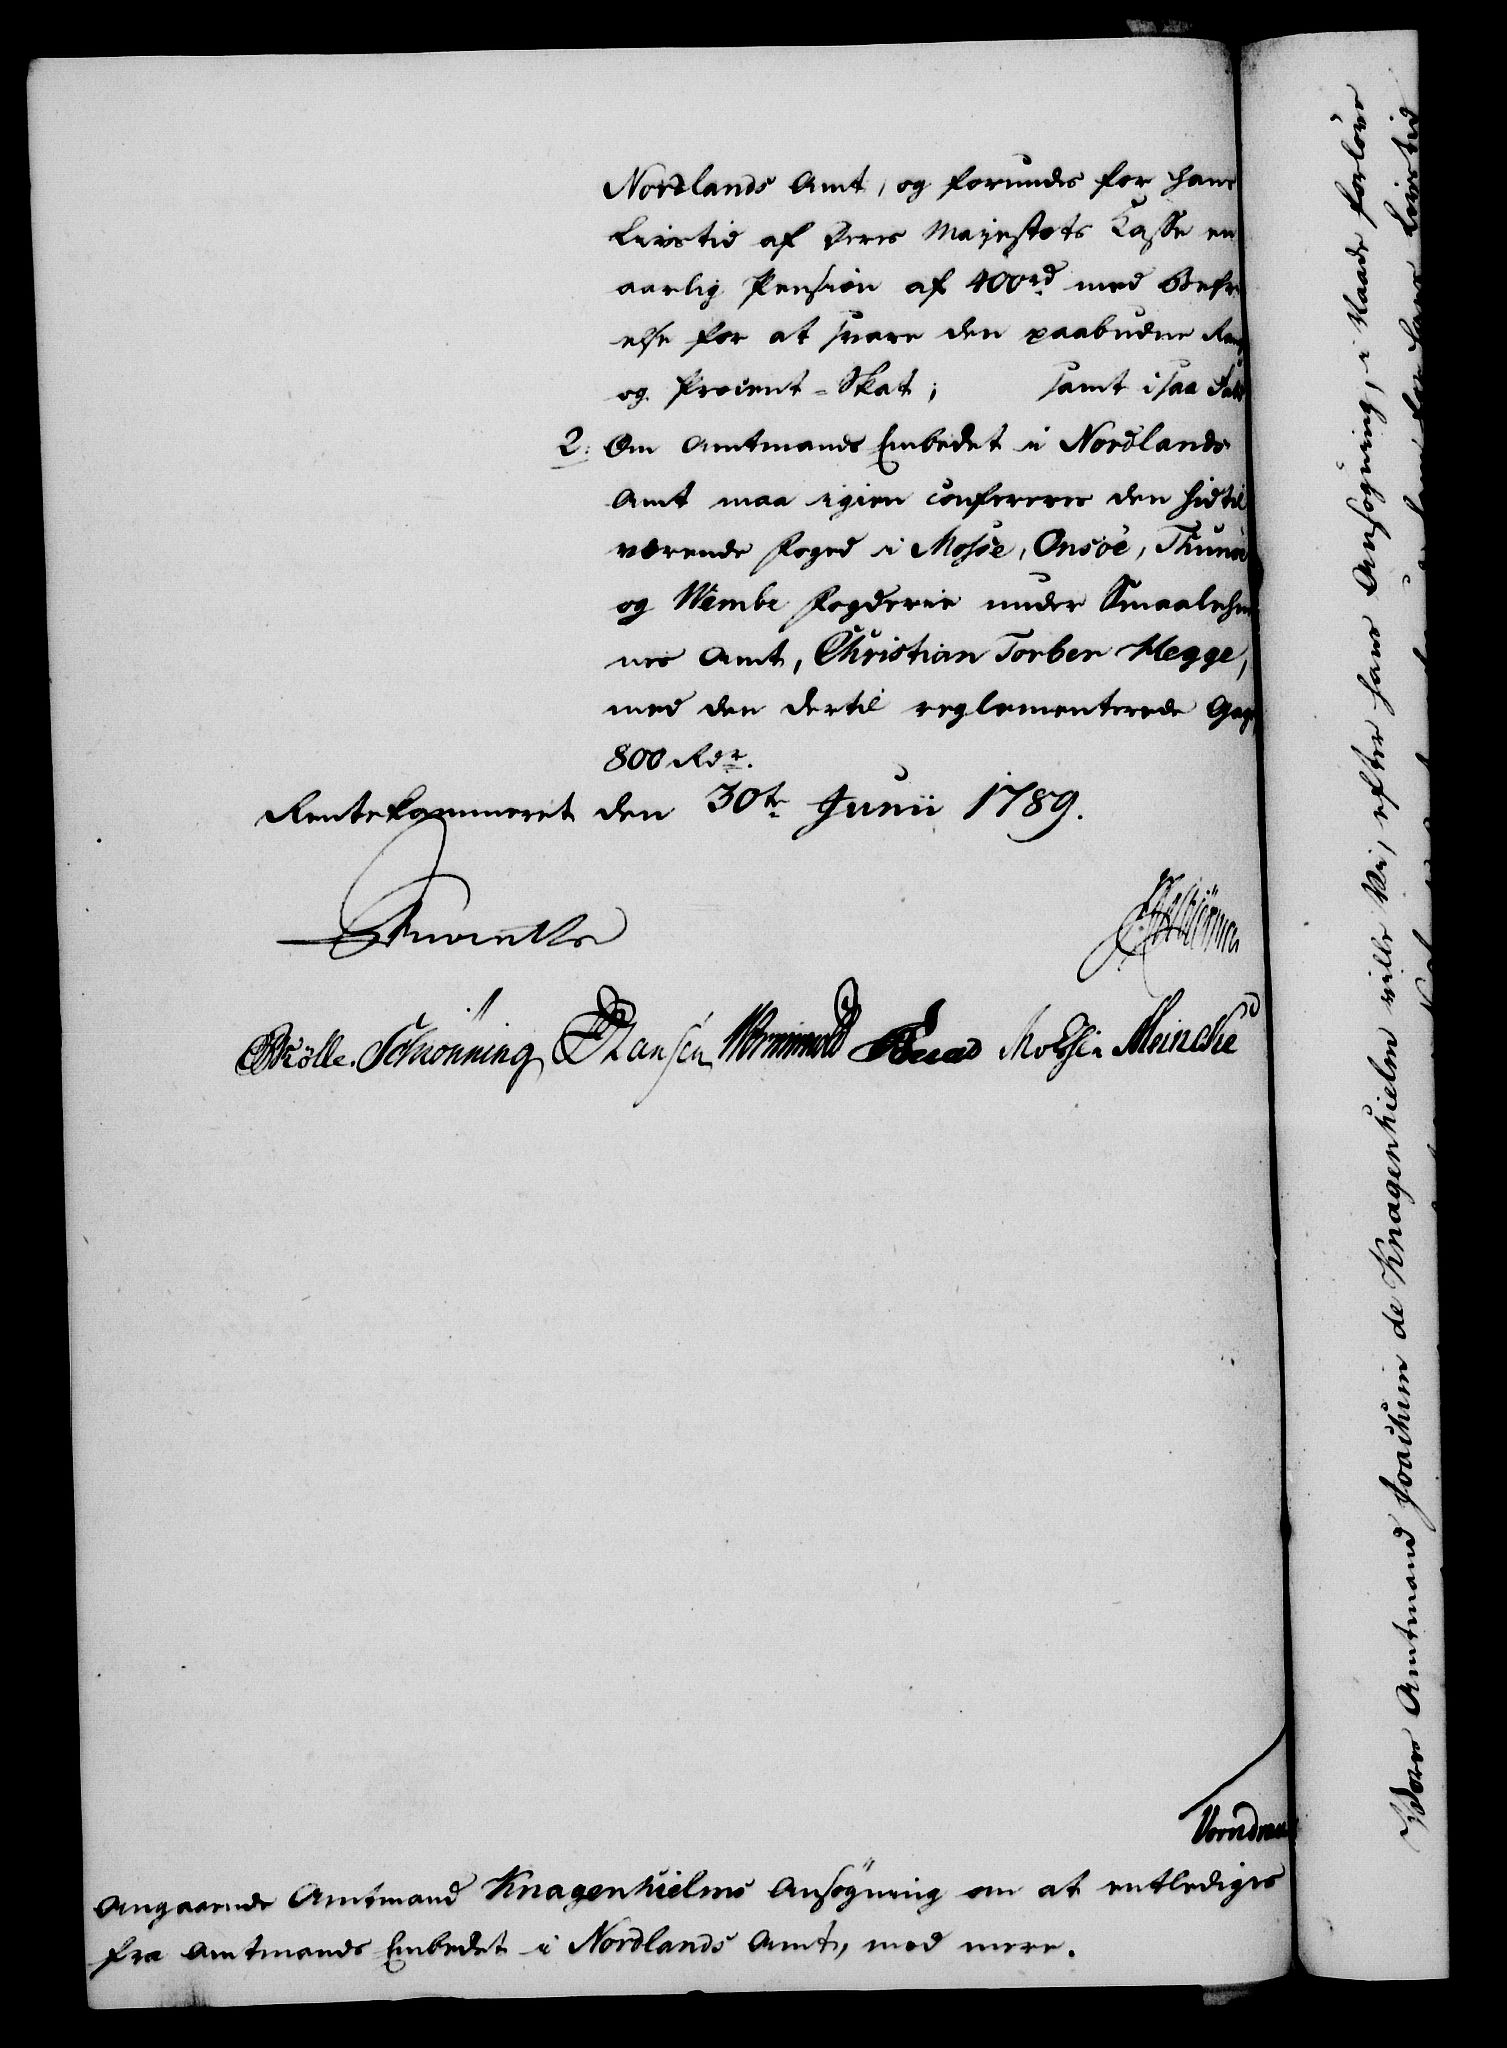 Nordlands Amt, og forundes for hans
Livstid af Deres Majestets Casse en
aarlig Pension af 400rd med Befri
else for at svare den paabudne Rang
og Procent-Skat; samt i saa Fald
2. Om Amtmands Embedet i Nordlands
Amt maa igien confereres den hidtil
værende Foged i Mosse, Onsøe, Thunøe
og Wembe Fogderie under Smaalehne
nes Amt, Christian Torber Hegge,
med den dertil reglementerede Gage
800 Rdr.
Rentekammeret den 30te Junii 1789.
Schiønning Hansen Wormskiold Meincke
Angaaende Amtmand Knagenhielms Ansøgning om at entlediges
fra Amtmands Embedet i Nordlands Amt, med mere.
Amtmand Joachim de Knagenhielm ville Vi, efter hans Ansøgning, i Naade forlove
Livstid